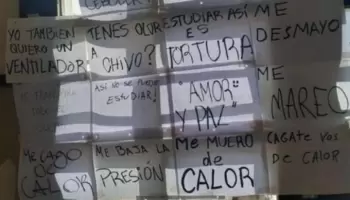 YO TAMBIEN
QUIERO UN
VENTILADOR
TENES OLOR
A CHIVO?
ESTUDIAR ASÍ
ES
TORTURA
ME
DESMAYO
ASÍ NO SE PUEDE
ESTUDIAR!
"AMOR
Y PAZ"
ME
MAREO
ME CAGO
DE
CALOR
ME BAJA LA
PRESIÓN
ME MUERO
de
CALOR
CAGATE VOS
DE CALOR